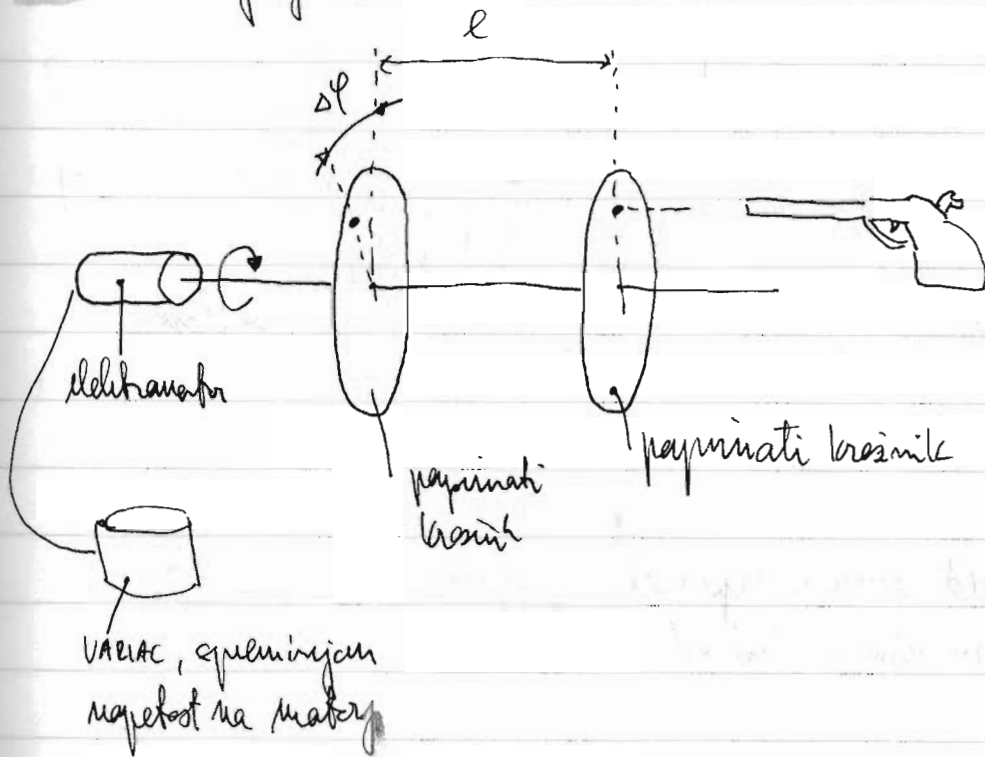 l
Δφ
elektromotor
papirnati
krožnik
papirnati krožnik
VARIAC, spreminjam
napetost na motorju